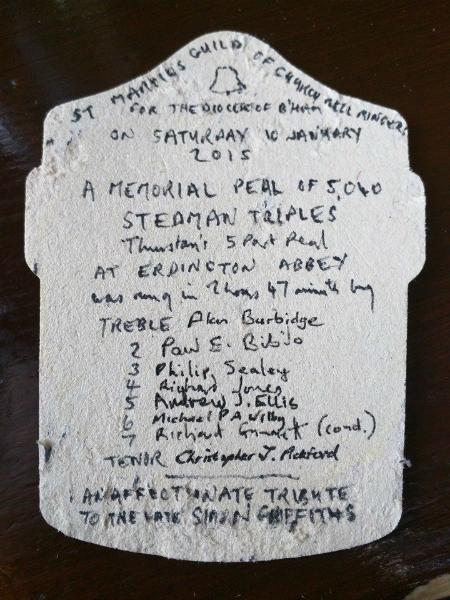 ST MARTIN'S GUILD OF CHURCH BELL RINGERS
FOR THE DIOCESE OF B'HAM
ON SATURDAY 10 JANUARY
2015
A MEMORIAL PEAL OF 5,040
STEDMAN TRIPLES
Thurstan's 5 Part Peal
AT ERDINGTON ABBEY
was rung in 2 hours 47 minutes by
TREBLE Alan Burbidge
2 Paul E. Bibilo
3 Philip Sealey
4 Richard Jones
5 Andrew J. Ellis
6 Michael P A Wilby
7 Richard Grimmett (cond.)
TENOR Christopher J. Pickford
AN AFFECTIONATE TRIBUTE
TO THE LATE SIMON GRIFFITHS